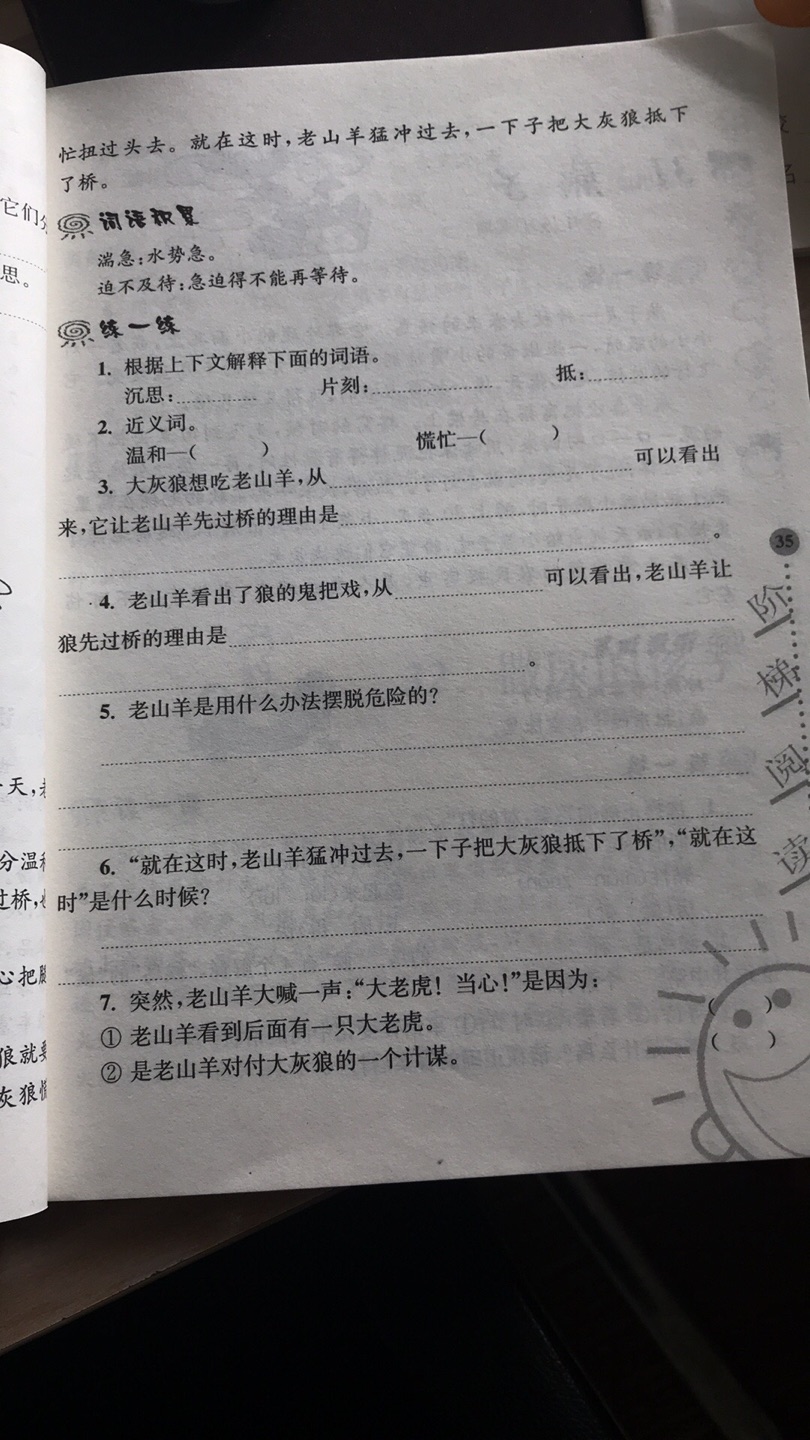 忙扭过头去。就在这时,老山羊猛冲过去,一下子把大灰狼抵下
了桥。
词语积累
湍急:水势急。
迫不及待:急迫得不能再等待。
练一练
1. 根据上下文解释下面的词语。
沉思: 片刻: 抵:
2. 近义词。
温和—( ) 慌忙—( )
3. 大灰狼想吃老山羊,从 可以看出
来,它让老山羊先过桥的理由是
。
4. 老山羊看出了狼的鬼把戏,从 可以看出,老山羊让
狼先过桥的理由是
。
5. 老山羊是用什么办法摆脱危险的?
6. “就在这时,老山羊猛冲过去,一下子把大灰狼抵下了桥”,“就在这
时”是什么时候?
7. 突然,老山羊大喊一声:“大老虎! 当心!”是因为:
① 老山羊看到后面有一只大老虎。 ( )
② 是老山羊对付大灰狼的一个计谋。 ( )
35
阶
梯
阅
读
它们分
思。
天,老
分温和
过桥,
心把腿
狼就要
灰狼慌